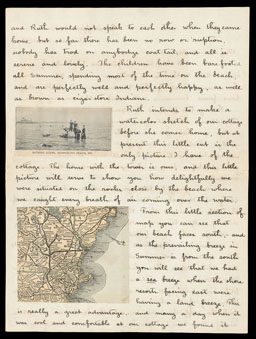 and Ruth would not speak to each other when they came
home, but so far there has been no row or ruption
nobody has trod on anybodys coat tail, and all is
serene and lovely. The children have been bare footed
all Summer, spending most of the time on the beach
and are perfectly well and perfectly happy, as well
as brown as cigar store Indians.
Ruth intends to make a
watercolor sketch of our cottage
before she comes home, but at
present this little cut is the
only picture I have of the
cottage. The home with the tower is ours, and this little
picture will serve to show you how delightfully we
were situated on the rocks close by the beach where
we caught every breath of air coming over the water.
From this little section of
map you can see that
our beach faces south, and
as the prevailing breeze in
Summer is from the south
you will see that we had
a sea breeze when the shore
resorts facing east were
having a land breeze. This
is really a great advantage, and many a day when it
was cool and comfortable at our cottage we found it